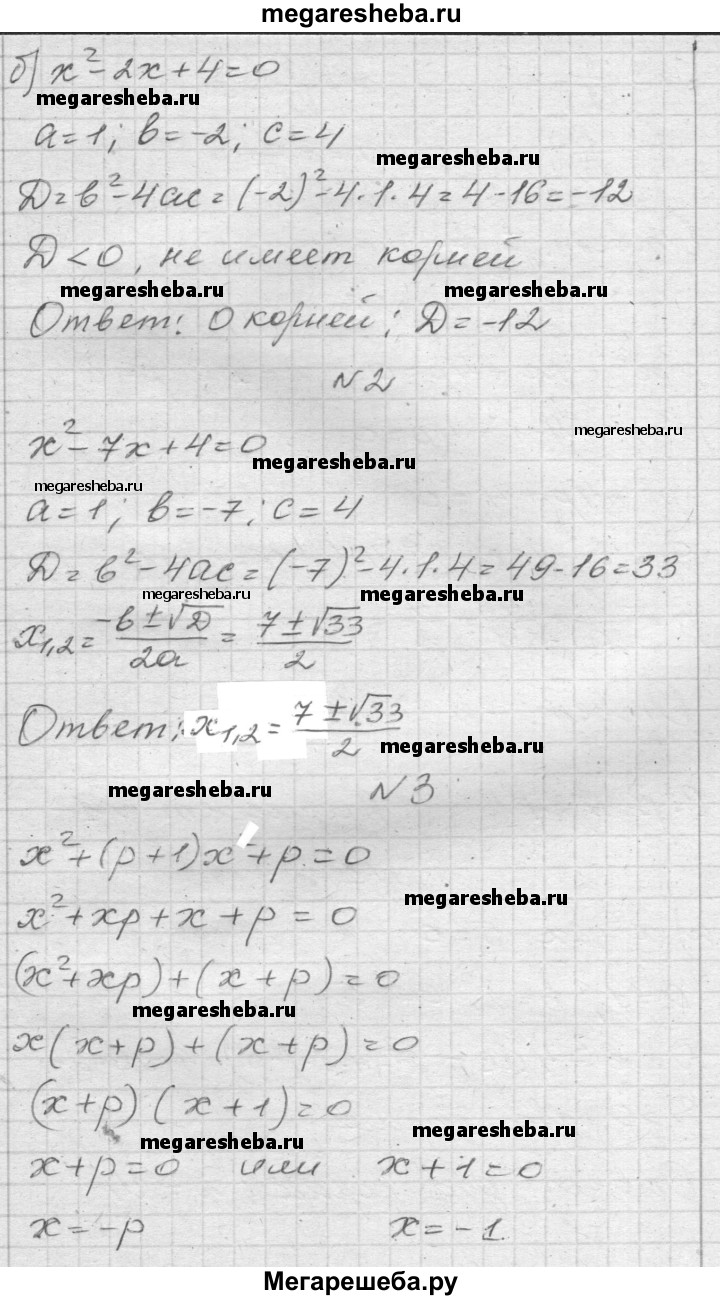 megaresheba.ru
б) x² - 2x + 4 = 0
megaresheba.ru
a = 1; b = -2; c = 4
megaresheba.ru
D = b² - 4ac = (-2)² - 4·1·4 = 4 - 16 = -12
D < 0, не имеет корней
megaresheba.ru megaresheba.ru
Ответ: 0 корней; D = -12
N2
megaresheba.ru
x² - 7x + 4 = 0
megaresheba.ru
megaresheba.ru
a = 1; b = -7; c = 4
D = b² - 4ac = (-7)² - 4·1·4 = 49 - 16 = 33
megaresheba.ru megaresheba.ru
x₁,₂ = (-b ± √D)/2a = (7 ± √33)/2
Ответ: x₁,₂ = (7 ± √33)/2
megaresheba.ru
megaresheba.ru
N3
x² + (p + 1)x + p = 0
megaresheba.ru
x² + xp + x + p = 0
(x² + xp) + (x + p) = 0
megaresheba.ru
x(x + p) + (x + p) = 0
(x + p)(x + 1) = 0
megaresheba.ru megaresheba.ru
x + p = 0 или x + 1 = 0
x = -p x = -1
Мегарешеба.ру